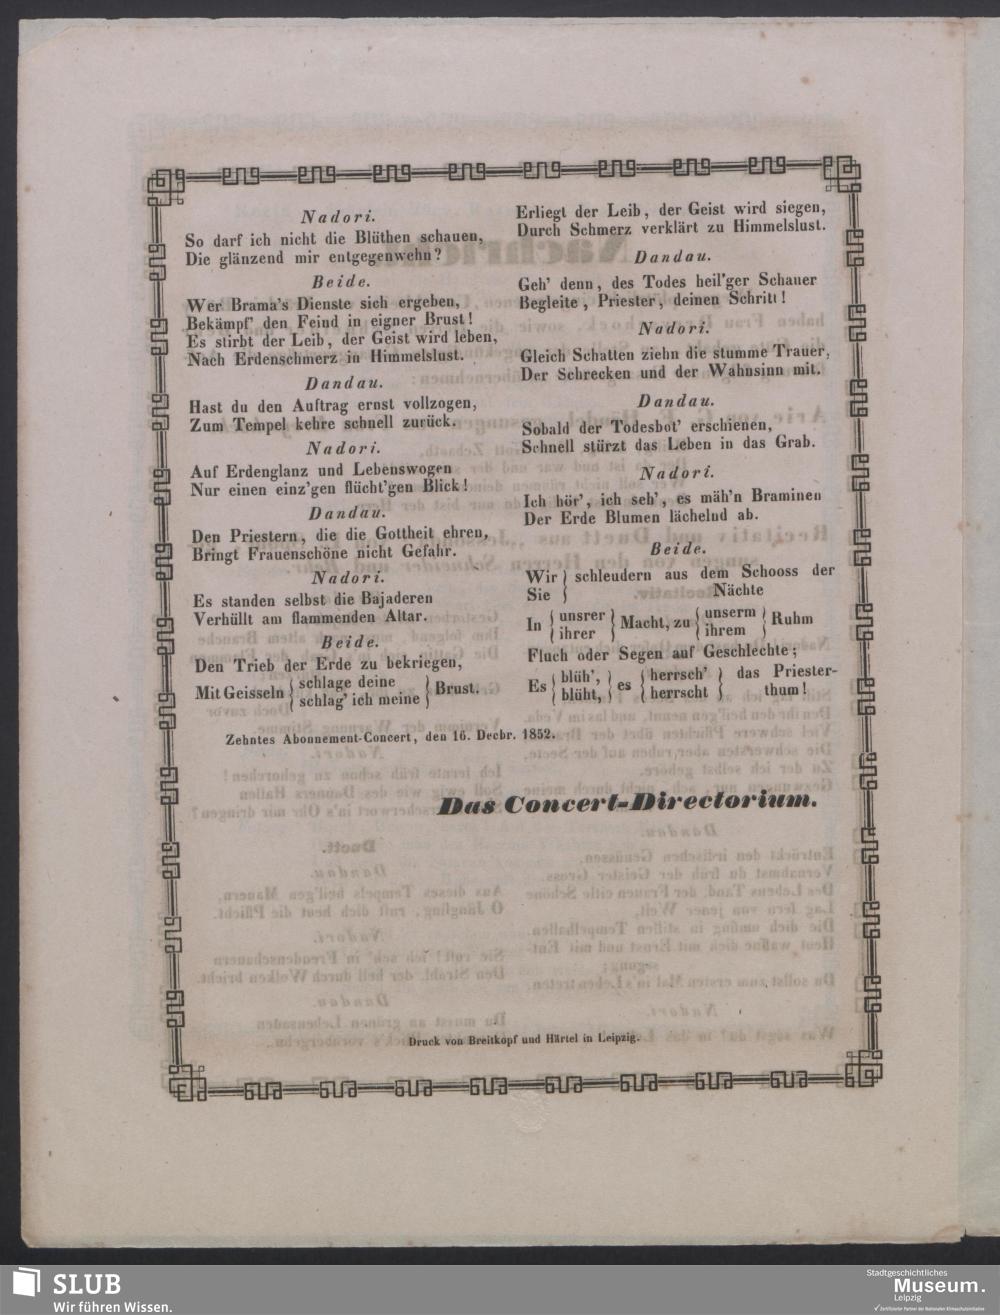 Nadori.
So darf ich nicht die Blüthen schauen,
Die glänzend mir entgegenwehn?
Beide.
Wer Brama's Dienste sich ergeben,
Bekämpf' den Feind in eigner Brust!
Es stirbt der Leib, der Geist wird leben,
Nach Erdenschmerz in Himmelslust.
Dandau.
Hast du den Auftrag ernst vollzogen,
Zum Tempel kehre schnell zurück.
Nadori.
Auf Erdenglanz und Lebenswogen
Nur einen einz'gen flücht'gen Blick!
Dandau.
Den Priestern, die die Gottheit ehren,
Bringt Frauenschöne nicht Gefahr.
Nadori.
Es standen selbst die Bajaderen
Verhüllt am flammenden Altar.
Beide.
Den Trieb der Erde zu bekriegen,
Mit Geisseln { schlage deine } Brust.
{ schlag' ich meine }
Erliegt der Leib, der Geist wird siegen,
Durch Schmerz verklärt zu Himmelslust.
Dandau.
Geh' denn, des Todes heil'ger Schauer
Begleite, Priester, deinen Schritt!
Nadori.
Gleich Schatten ziehn die stumme Trauer,
Der Schrecken und der Wahnsinn mit.
Dandau.
Sobald der Todesbot' erschienen,
Schnell stürzt das Leben in das Grab.
Nadori.
Ich hör', ich seh', es mäh'n Braminen
Der Erde Blumen lächelnd ab.
Beide.
Wir } schleudern aus dem Schooss der
Sie } Nächte
In { unsrer } Macht, zu { unserm } Ruhm
{ ihrer } { ihrem }
Fluch oder Segen auf Geschlechte;
Es { blüh', } es { herrsch' } das Priester-
{ blüht, } { herrscht } thum!
Zehntes Abonnement-Concert, den 16. Decbr. 1852.
Das Concert-Directorium.
Druck von Breitkopf und Härtel in Leipzig.
SLUB
Wir führen Wissen.
Stadtgeschichtliches
Museum.
Leipzig